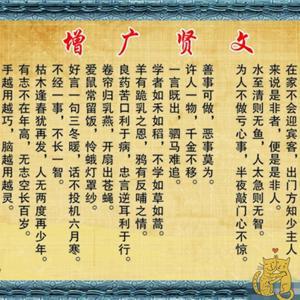 增广贤文
在家不会迎宾客,出门方知少主人。
来说是非者,便是是非人。
水至清则无鱼,人太急则无智。
为人不做亏心事,半夜敲门心不惊。
善事可做,恶事莫为。
许人一物,千金不移。
一言既出,驷马难追。
学者如禾如稻,不学如草如蒿。
羊有跪乳之恩,鸦有反哺之情。
良药苦口利于病,忠言逆耳利于行。
卷帘归乳燕,开扇出苍蝇。
爱鼠常留饭,怜蛾灯罩纱。
好言一句三冬暖,话不投机六月寒。
不经一事,不长一智。
枯木逢春犹再发,人无两度再少年。
有志不在年高,无志空长百岁。
手越用越巧,脑越用越灵。